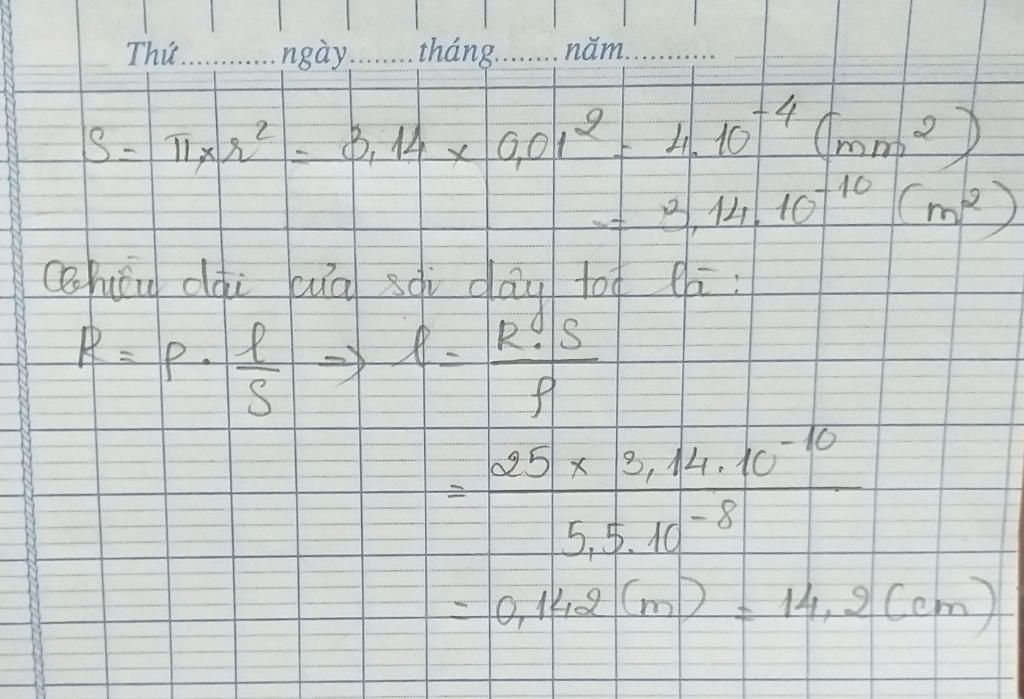 Thứ............ngày........tháng........năm...........
S = π × r² = 3,14 × 0,01² = 4.10⁻⁴ (mm²)
= 3,14.10⁻¹⁰ (m²)
Chiều dài của sợi dây tóc là:
R = ρ . l/S => l = R.S/ρ
= 25 × 3,14.10⁻¹⁰ / 5,5.10⁻⁸
= 0,142 (m) = 14,2 (cm)